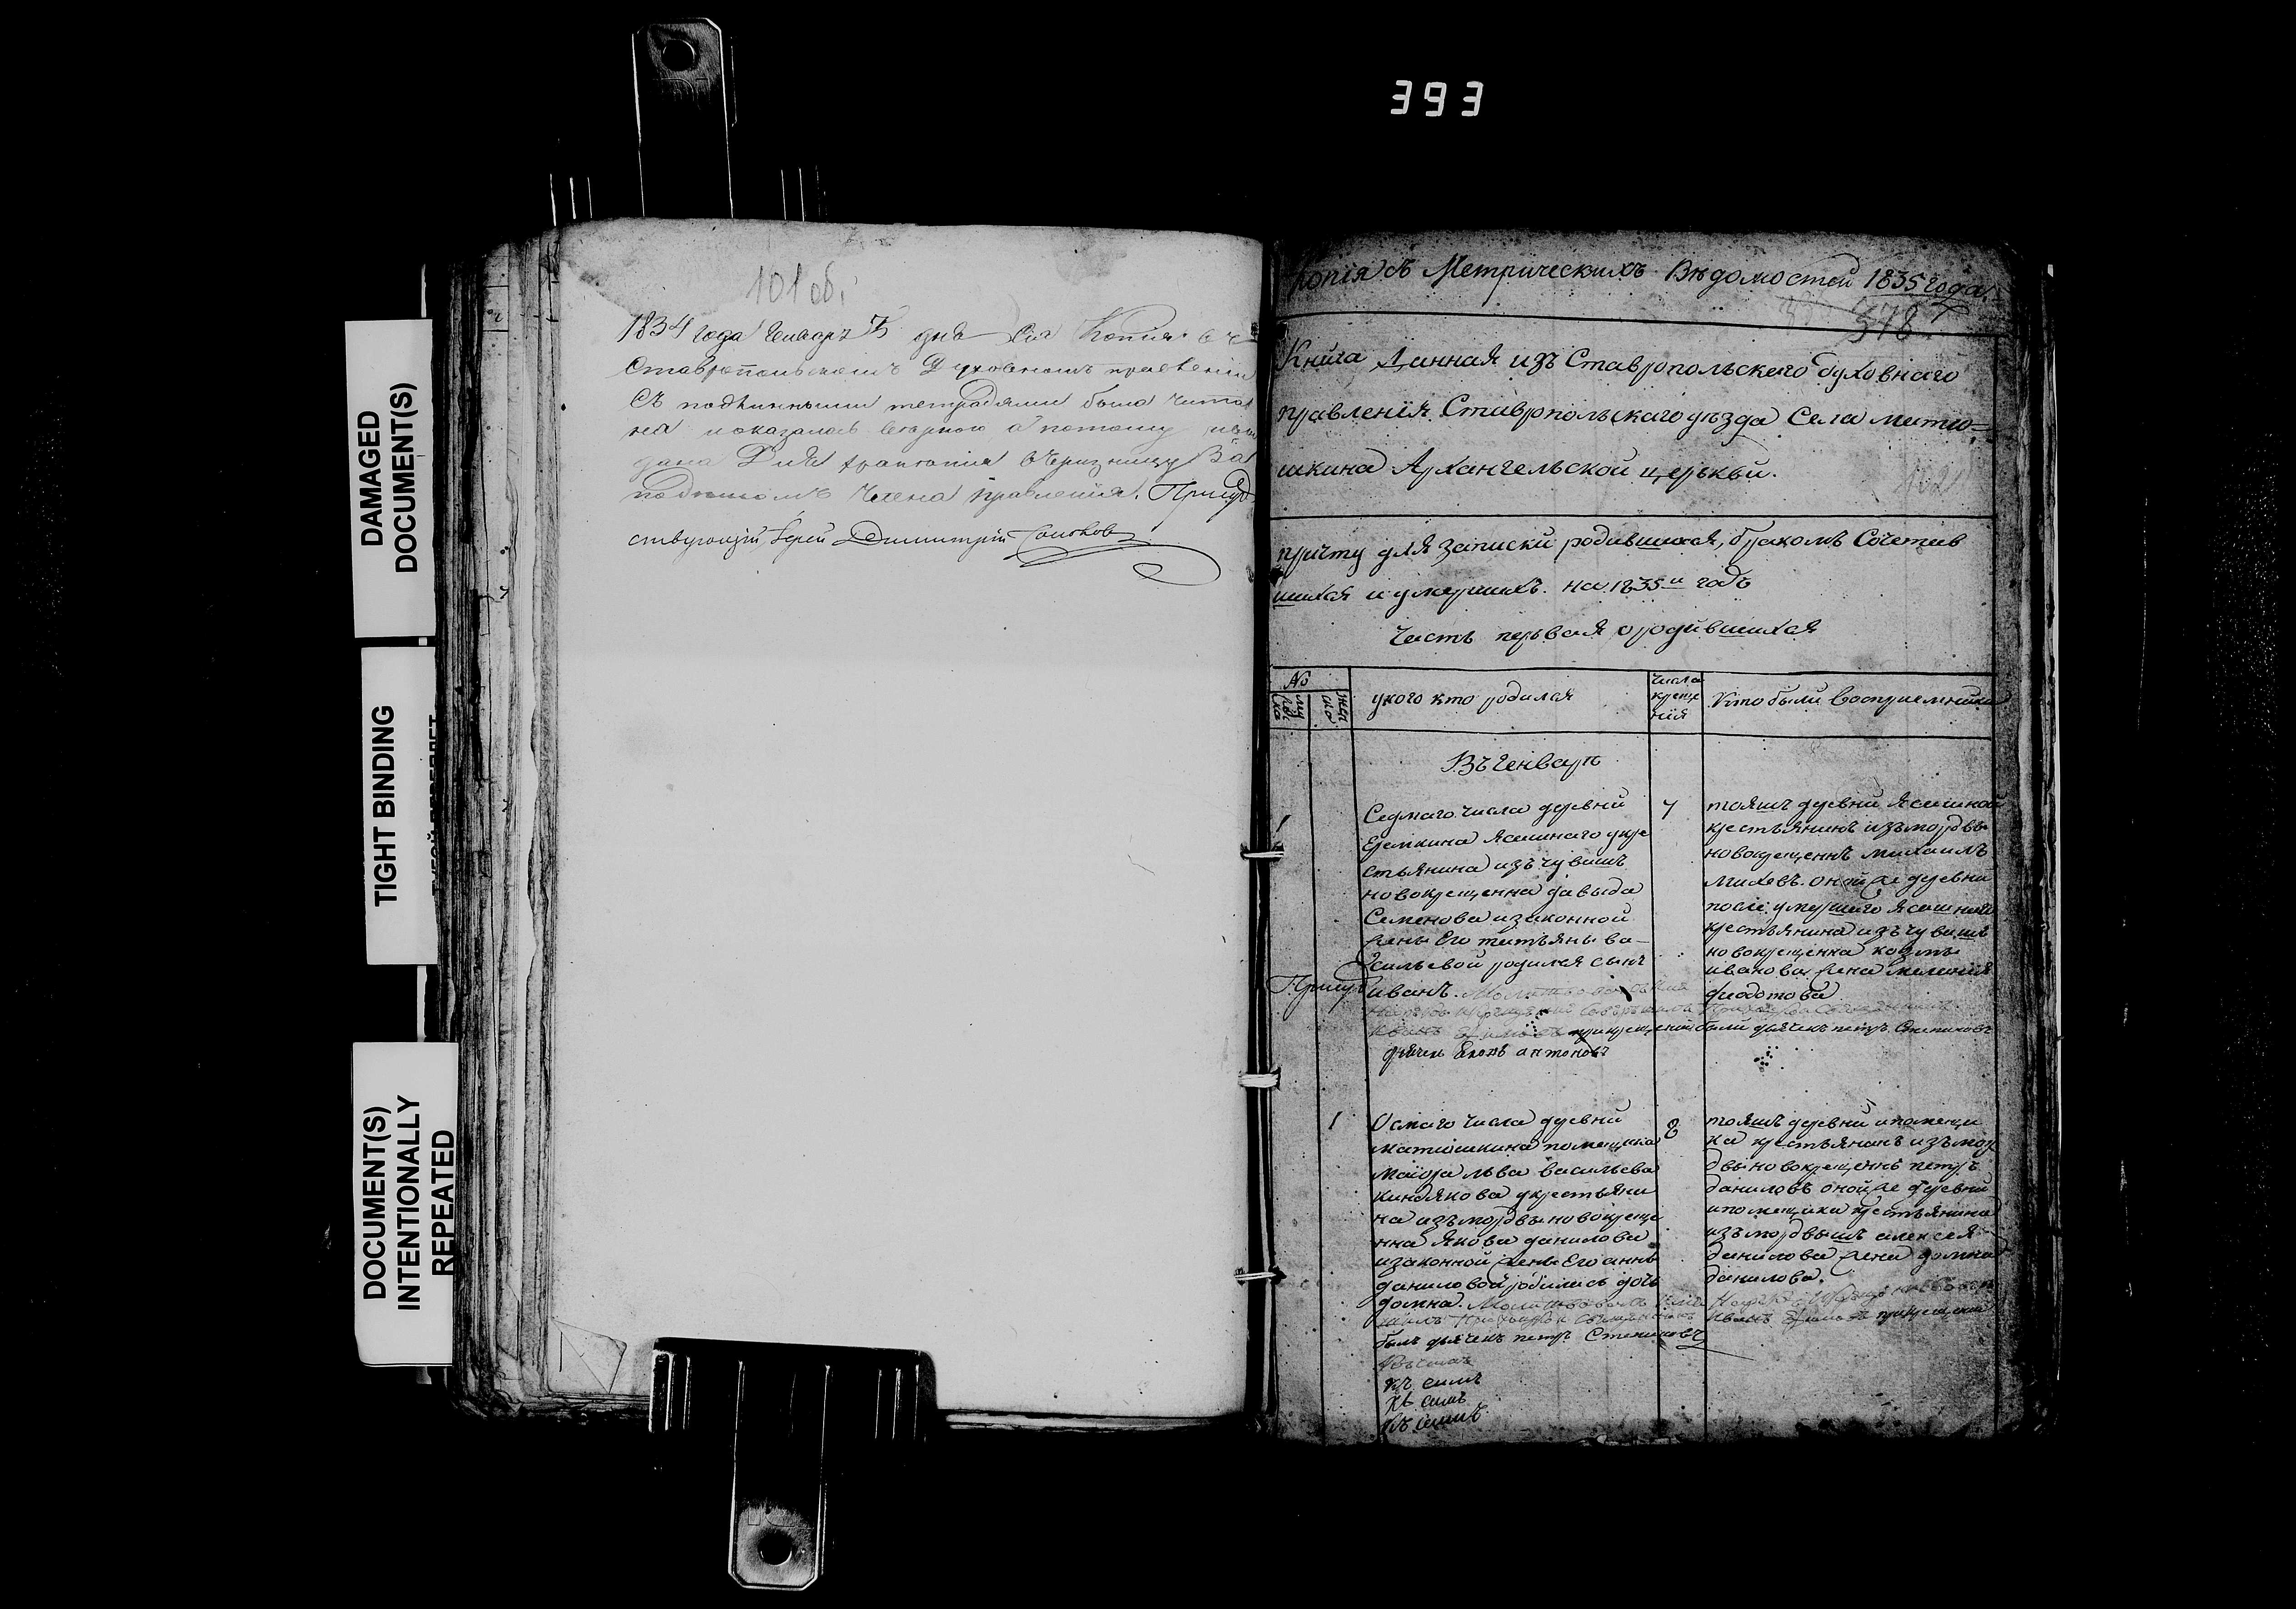 393
DAMAGED
DOCUMENT(S)
TIGHT BINDING
DOCUMENT(S)
INTENTIONALLY
REPEATED
101 об.
1834 года Генваря дня Сія Копія въ
Ставропольскомъ Духовномъ правленіи
Съ подлинными тетрадями была чита
на и оказалась верною а потому
дана Для храненія въ ризницу За
подписомъ члена правленія. Присуд
ствующій Іерей Димитрій
Копія съ Метрическихъ Вѣдомостей 1835 года.
378
Книга Данная изъ Ставропольскаго духовнаго
правленія Ставропольскаго уѣзда Села матю=
шкина Архангельской церькви.
102
причту для записки родившихся, бракомъ Сочетав
шихся и умершихъ. на 1835й годъ
Часть первая о родившихся
№
мужеска
женска
у кого кто родился
числа
креще
нія
Кто были восприемники
Въ Генварѣ
1
Седмаго числа деревни
Еремкина Ясашнаго укре
стьянина изъ чувашъ
новокрещенна давыда
Семенова и законной
жены Его татьяны ва-
сильевой родился сынъ
иванъ. Молитвовалъ имя
7
тояжъ деревни Ясашной
крестьянинъ изъ мордвы
новокрещеннъ михаилъ
михѣевъ. оной же деревни
после умершаго Ясашнаго
крестьянина изъ чувашъ
новокрещенна козмы
иванова жена меланія
федотова
при крещеніи были дьячекъ петръ Степановъ
антоновъ
1
Осмаго числа деревни
матюшкина помещика
маіора льва васильева
киндякова укрестьяни
на изъ мордвы новокреще
нна Якова данилова
и законной жены Его анны
даниловой родилась дочь
домна. Молитвовалъ имя
8
тояжъ деревни и помещи
ка крестьянинъ изъ мор
двы новокрещеннъ петръ
даниловъ оной же деревни
и помещика крестьянина
изъ мордвы алексея
данилова жена домна
данилова.
Иванъ при крещеніи
былъ дьячекъ петръ Степановъ